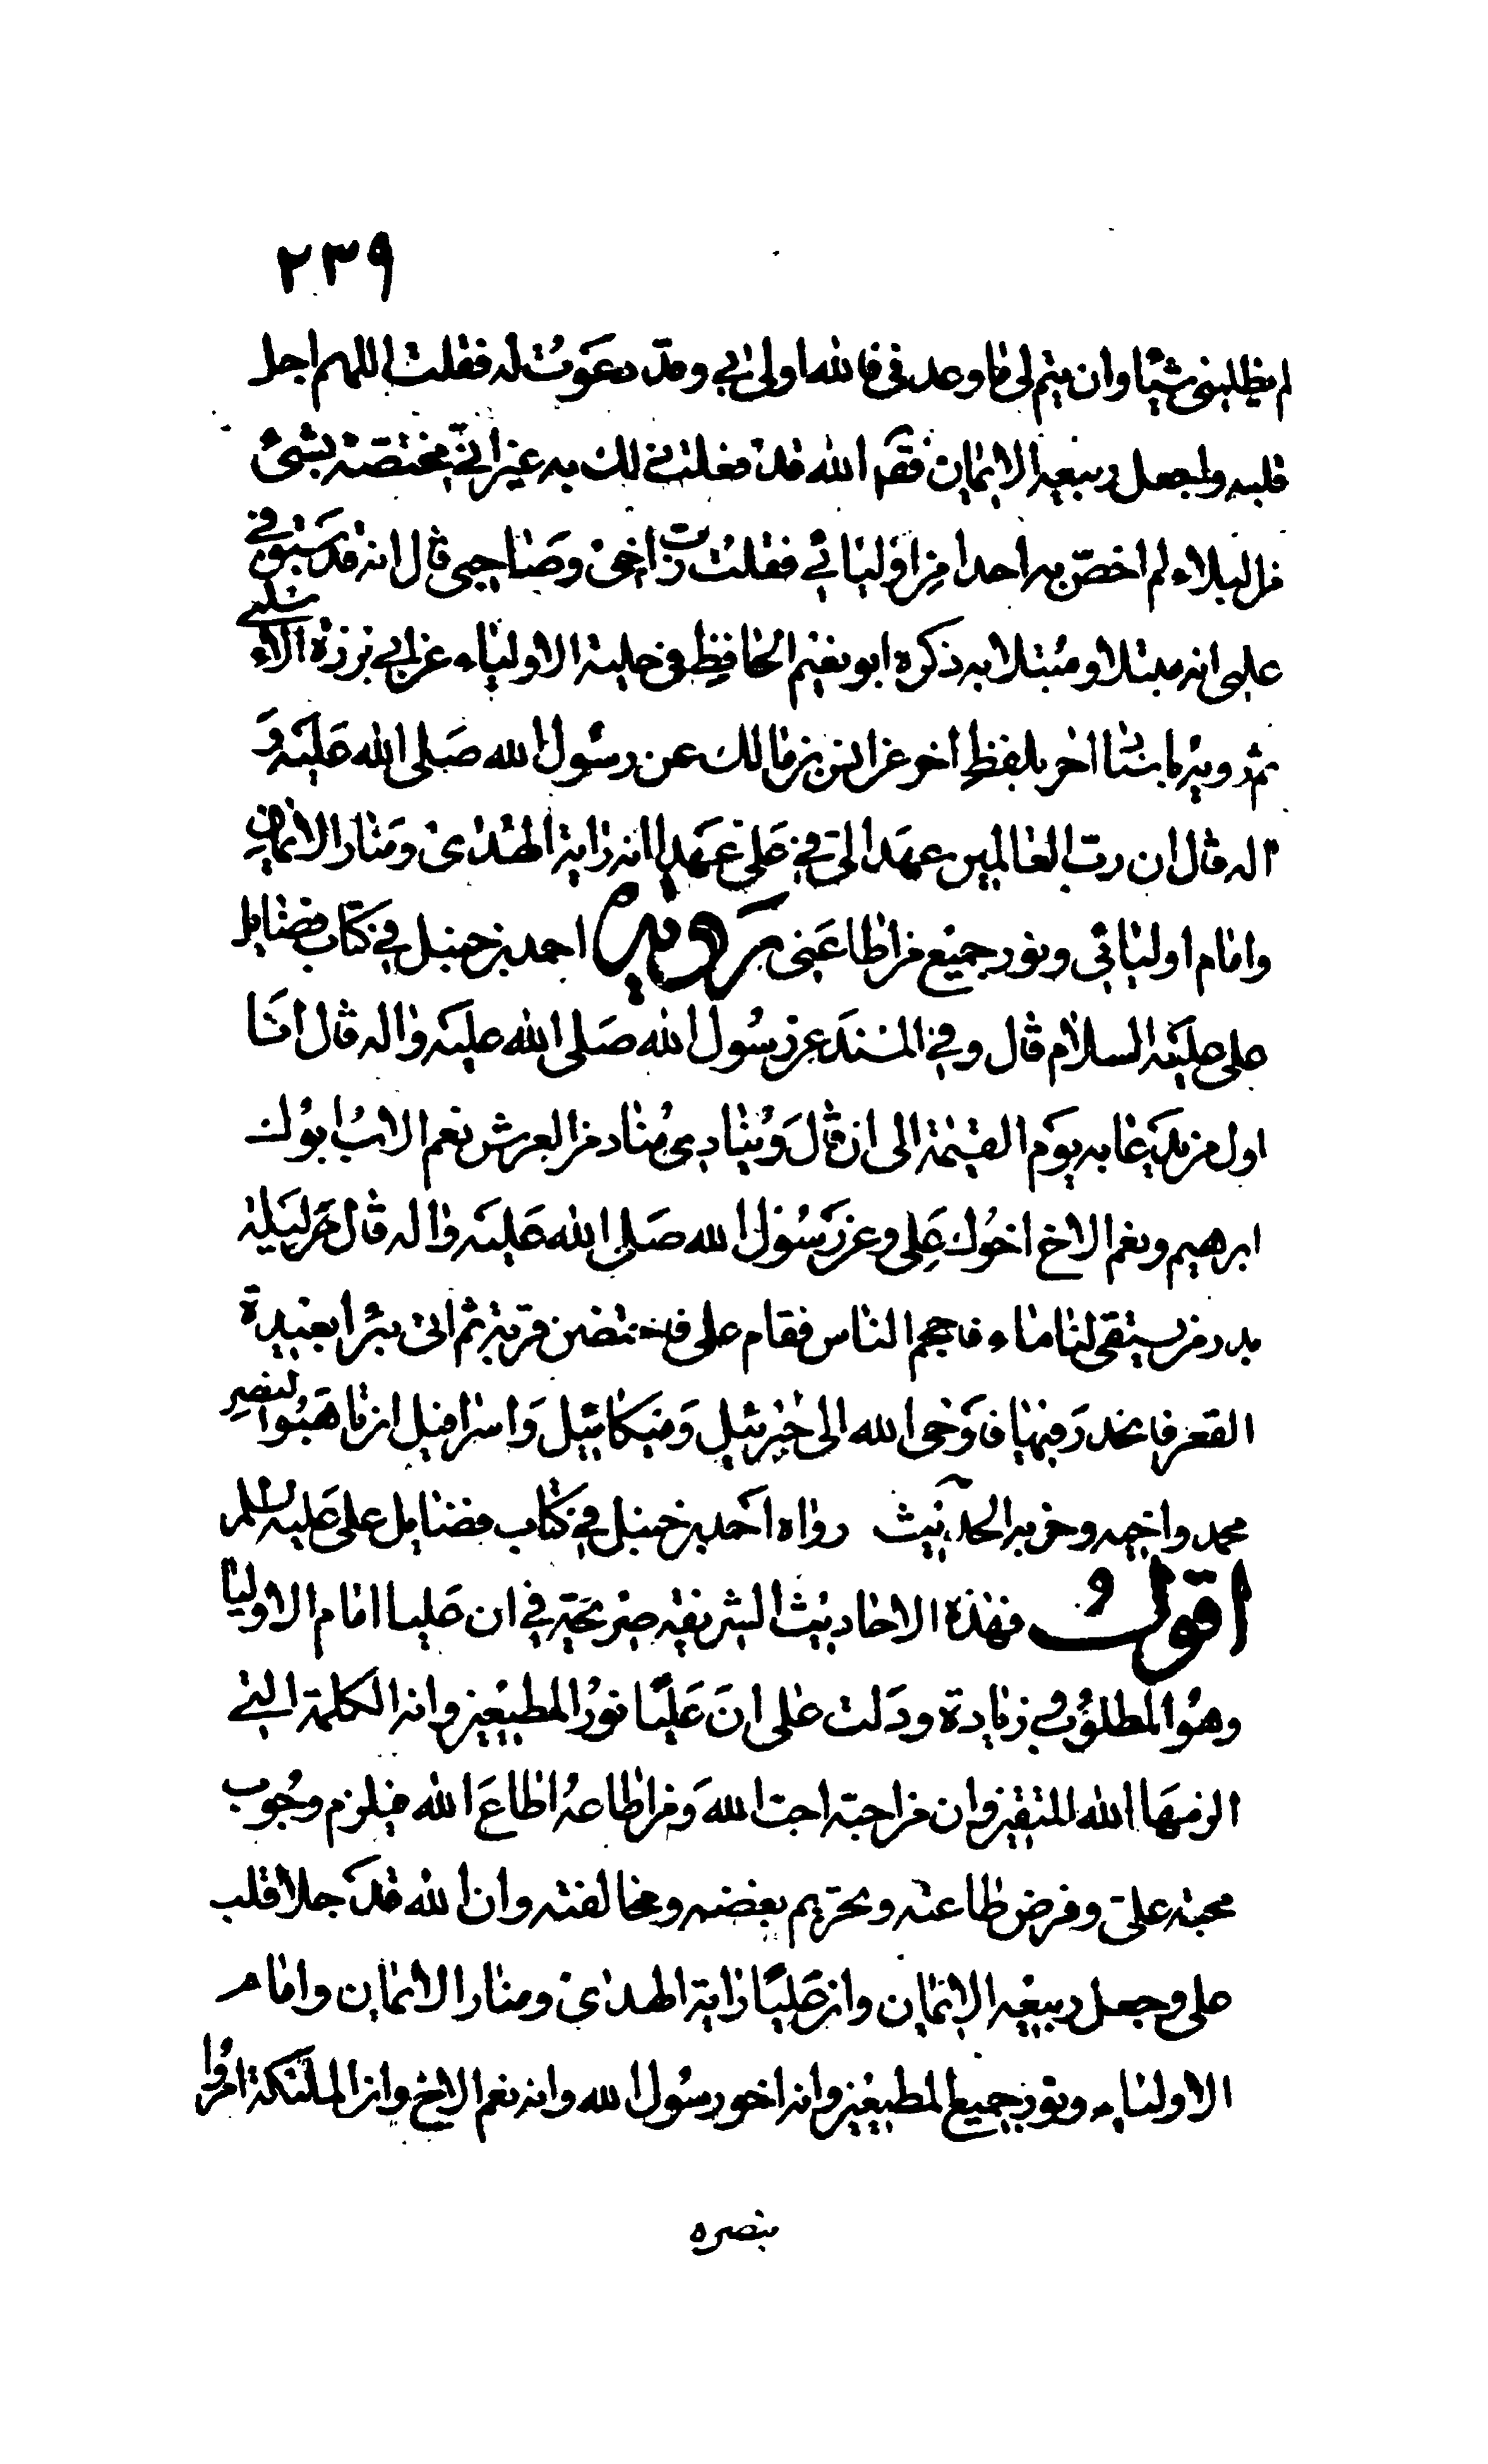 ٢٣٩
لم يظلمني شيئا وان يتم لي ما وعدني فالله اولى بي وقد دعوت له فقلت اللهم اجل
قلبه واجعل ربيعه الايمان فقال الله قد فعلت ذلك به غير اني مختصه بشئ
من البلاء لم اخص به احدا من اوليائي فقلت رب اخي وصاحبي قال انه قد سبق في
علمي انه مبتلا ومبتلا به ذكره ابو نعيم الحافظ في حلية الاولياء عن ابي برزة الاسلمي
ثم رويه باسناد اخر بلفظ اخر عن انس بن مالك عن رسول الله صلى الله عليه و
اله قال ان رب العالمين عهد الي في علي عهدا انه راية الهدى ومنار الايمان
وامام اوليائي ونور جميع من اطاعني روى احمد بن حنبل في كتاب فضايل
علي عليه السلام قال وفي المسند عن رسول الله صلى الله عليه واله قال انا
اول من يدعا به يوم القيمة الى ان قال وينادي مناد من العرش نعم الاب ابوك
ابرهيم ونعم الاخ اخوك علي وعن رسول الله صلى الله عليه واله قال في ليلة
بدر من يستقي لنا ماء فاحجم الناس فقام علي فاحتضن قربة ثم اتى بئرا بعيدة
القعر فانحدر فيها فاوحى الله الى جبرئيل وميكائيل واسرافيل ان تاهبوا لنصر
محمد واخيه وحزبه الحديث رواه احمد بن حنبل في كتاب فضايل علي عليه السلم
اقول فهذه الاحاديث الشريفة صريحة في ان عليا امام الاوليا
وهو المطلوب وزيادة ودلت على ان عليا نور المطيعين وانه الكلمة التي
الزمها الله المتقين وان من احبه احب الله ومن اطاعه اطاع الله فيلزم وجوب
محبة علي وفرض طاعته وتحريم بغضه ومخالفته وان الله قد جلا قلب
علي وجعل ربيعه الايمان وان عليا راية الهدى ومنار الايمان وامام
الاولياء ونور جميع المطيعين وانه اخو رسول الله وانه نعم الاخ وان الملئكة امروا
بنصره